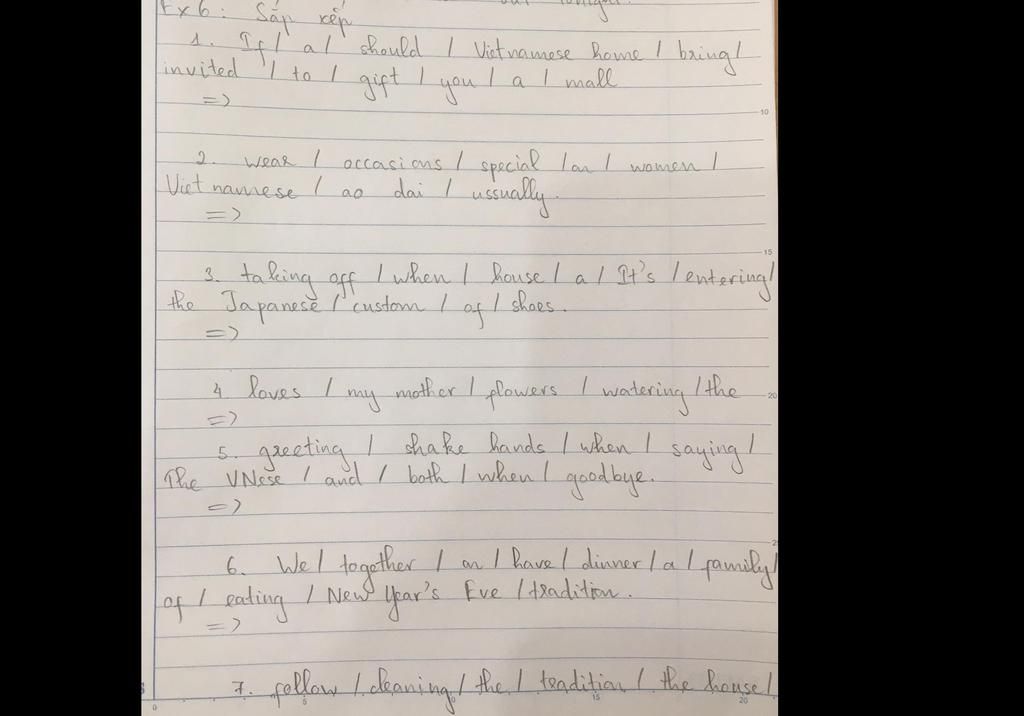 Ex 6: Sắp xếp
1. If / a / should / Vietnamese home / bring /
invited / to / gift / you / a / mall
=>
2. wear / occasions / special / on / women /
Vietnamese / ao dai / ussually.
=>
3. taking off / when / house / a / It's / entering /
the Japanese / custom / of / shoes.
=>
4 loves / my mother / flowers / watering / the
=>
5. greeting / shake hands / when / saying /
The VNese / and / both / when / goodbye.
=>
6. We / together / on / have / dinner / a / family /
of / eating / New Year's Eve / tradition.
=>
7. follow / cleaning / the / tradition / the house /